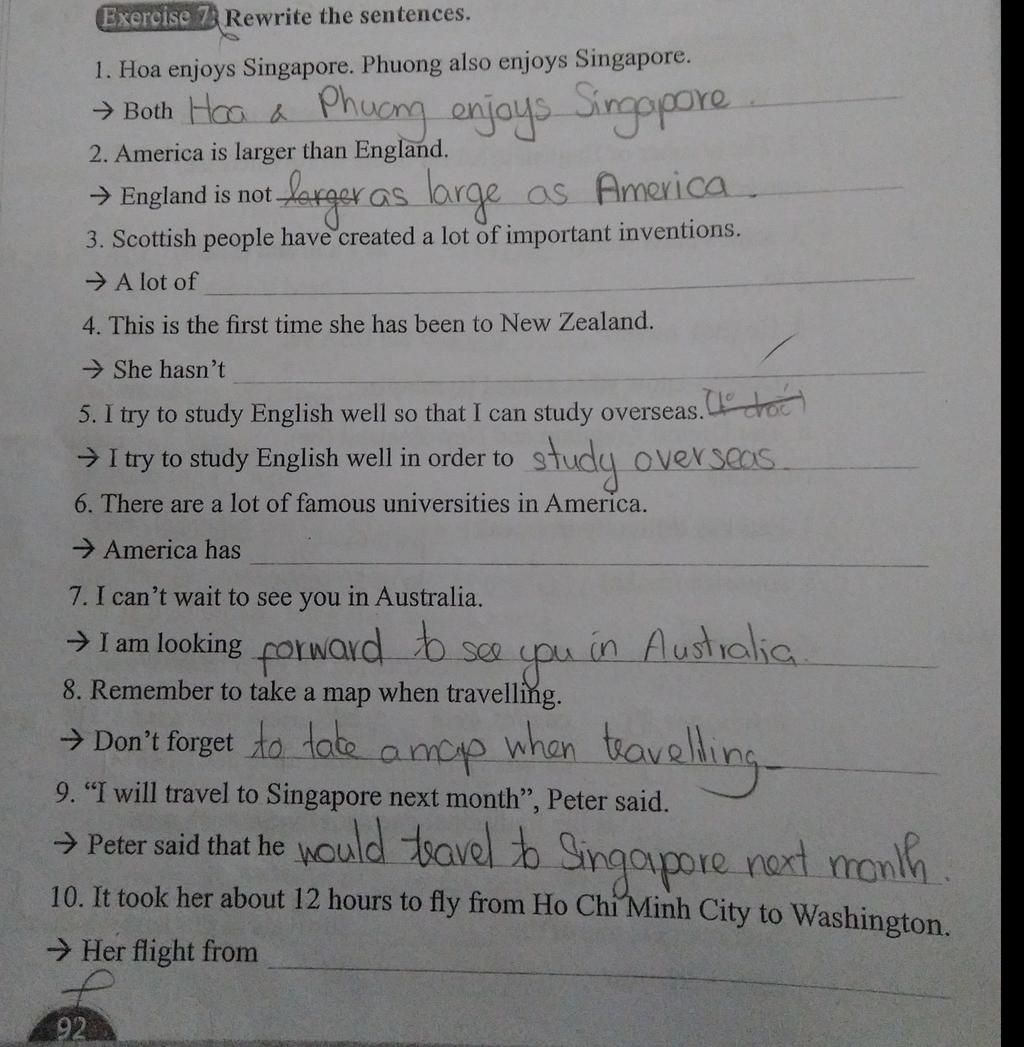 Exercise 7: Rewrite the sentences.
1. Hoa enjoys Singapore. Phuong also enjoys Singapore.
→ Both Hoa & Phuong enjoys Singapore.
2. America is larger than England.
→ England is not larger as large as America.
3. Scottish people have created a lot of important inventions.
→ A lot of
4. This is the first time she has been to New Zealand.
→ She hasn't
5. I try to study English well so that I can study overseas.
→ I try to study English well in order to study overseas.
6. There are a lot of famous universities in America.
→ America has
7. I can't wait to see you in Australia.
→ I am looking forward to see you in Australia.
8. Remember to take a map when travelling.
→ Don't forget to take a map when travelling
9. “I will travel to Singapore next month”, Peter said.
→ Peter said that he would travel to Singapore next month.
10. It took her about 12 hours to fly from Ho Chi Minh City to Washington.
→ Her flight from
92